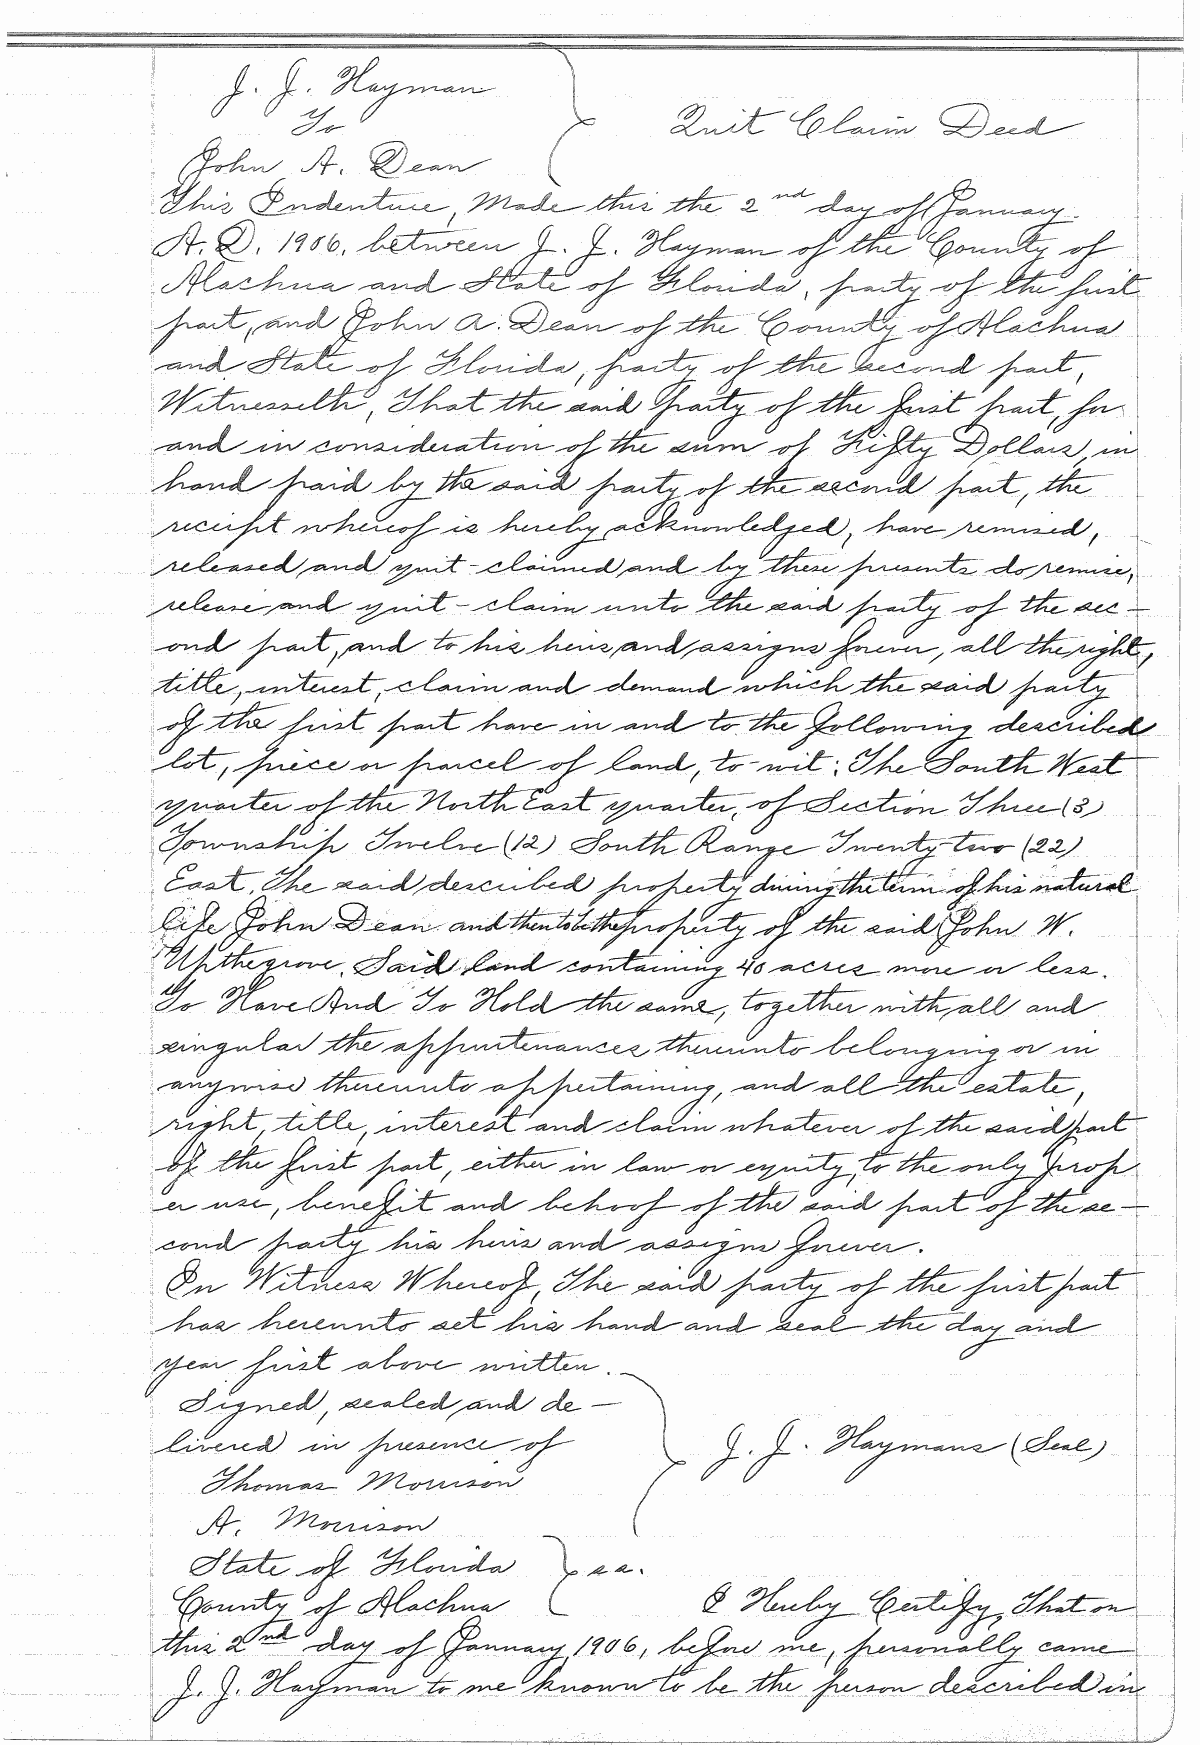 J. J. Hayman
To
Quit Claim Deed
John A. Dean
This Indenture, Made this the 2nd day of January
A. D. 1906, between J. J. Hayman of the County of
Alachua and State of Florida, party of the first
part, and John A. Dean of the County of Alachua
and State of Florida, party of the second part,
Witnesseth, That the said party of the first part, for
and in consideration of the sum of Fifty Dollars, in
hand paid by the said party of the second part, the
receipt whereof is hereby acknowledged, have remised,
released and quit-claimed and by these presents do remise,
release and quit-claim unto the said party of the sec-
ond part, and to his heirs and assigns forever, all the right,
title, interest, claim and demand which the said party
of the first part have in and to the following described
lot, piece or parcel of land, to-wit: The South West
quarter of the North East quarter, of Section Three (3)
Township Twelve (12) South Range Twenty-two (22)
East. The said described property during the term of his natural
life John Dean and then to be the property of the said John W.
Upthegrove. Said land containing 40 acres more or less.
To Have And To Hold the same, together with, all and
singular the appurtenances thereunto belonging or in
anywise thereunto appertaining, and all the estate,
right, title, interest and claim whatever of the said part
of the first part, either in law or equity, to the only prop
er use, benefit and behoof of the said part of the se-
cond party his heirs and assigns forever.
In Witness Whereof, The said party of the first part
has hereunto set his hand and seal the day and
year first above written.
Signed, sealed, and de-
livered in presence of
J. J. Haymans (Seal)
Thomas Morrison
A. Morrison
State of Florida
ss.
County of Alachua
I Hereby Certify, That on
this 2nd day of January, 1906, before me, personally came
J. J. Hayman to me known to be the person described in